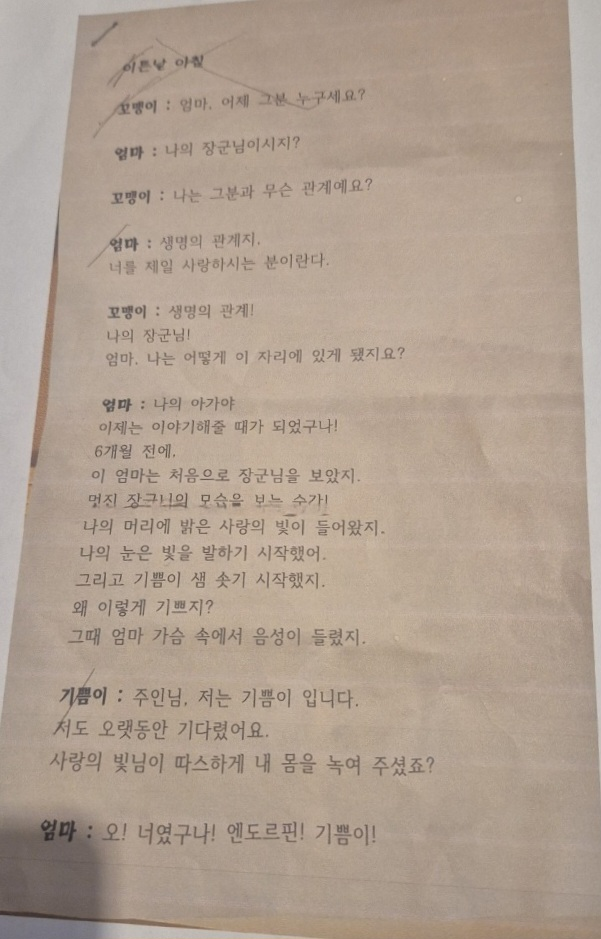 이튿날 아침
꼬맹이 : 엄마, 어제 그분 누구세요?
엄마 : 나의 장군님이시지?
꼬맹이 : 나는 그분과 무슨 관계예요?
엄마 : 생명의 관계지.
너를 제일 사랑하시는 분이란다.
꼬맹이 : 생명의 관계!
나의 장군님!
엄마, 나는 어떻게 이 자리에 있게 됐지요?
엄마 : 나의 아가야
이제는 이야기해줄 때가 되었구나!
6개월 전에,
이 엄마는 처음으로 장군님을 보았지.
멋진 장군님의 모습을 보는 순간!
나의 머리에 밝은 사랑의 빛이 들어왔지.
나의 눈은 빛을 발하기 시작했어.
그리고 기쁨이 샘 솟기 시작했지.
왜 이렇게 기쁘지?
그때 엄마 가슴 속에서 음성이 들렸지.
기쁨이 : 주인님, 저는 기쁨이 입니다.
저도 오랫동안 기다렸어요.
사랑의 빛님이 따스하게 내 몸을 녹여 주셨죠?
엄마 : 오! 너였구나! 엔도르핀! 기쁨이!